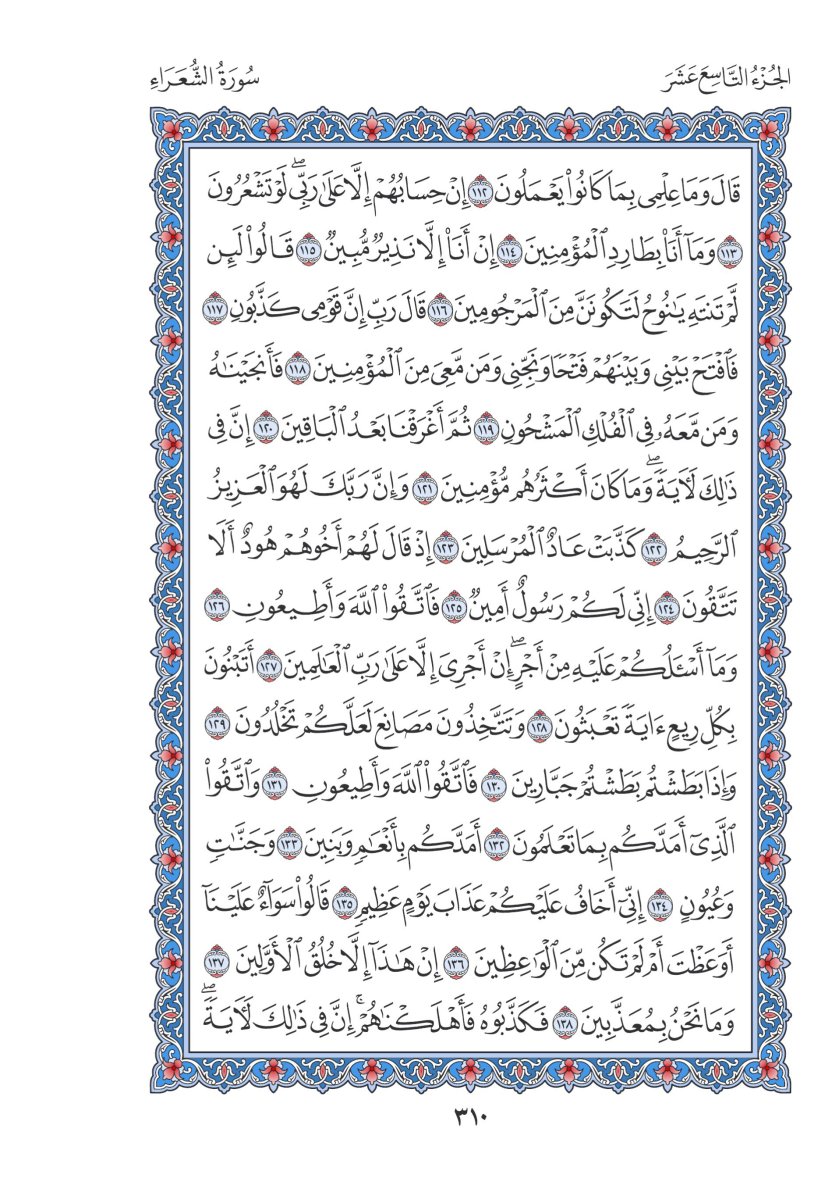 الجُزْءُ التَّاسِعَ عَشَرَ
سُورَةُ الشُّعَرَاءِ
قَالَ وَمَا عِلْمِى بِمَا كَانُوا۟ يَعْمَلُونَ ١١٢ إِنْ حِسَابُهُمْ إِلَّا عَلَىٰ رَبِّى ۖ لَوْ تَشْعُرُونَ
١١٣ وَمَآ أَنَا۠ بِطَارِدِ ٱلْمُؤْمِنِينَ ١١٤ إِنْ أَنَا۠ إِلَّا نَذِيرٌ مُّبِينٌ ١١٥ قَالُوا۟ لَئِن
لَّمْ تَنتَهِ يَٰنُوحُ لَتَكُونَنَّ مِنَ ٱلْمَرْجُومِينَ ١١٦ قَالَ رَبِّ إِنَّ قَوْمِى كَذَّبُونِ ١١٧
فَٱفْتَحْ بَيْنِى وَبَيْنَهُمْ فَتْحًا وَنَجِّنِى وَمَن مَّعِىَ مِنَ ٱلْمُؤْمِنِينَ ١١٨ فَأَنجَيْنَٰهُ
وَمَن مَّعَهُۥ فِى ٱلْفُلْكِ ٱلْمَشْحُونِ ١١٩ ثُمَّ أَغْرَقْنَا بَعْدُ ٱلْبَاقِينَ ١٢٠ إِنَّ فِى
ذَٰلِكَ لَءَايَةً ۖ وَمَا كَانَ أَكْثَرُهُم مُّؤْمِنِينَ ١٢١ وَإِنَّ رَبَّكَ لَهُوَ ٱلْعَزِيزُ
ٱلرَّحِيمُ ١٢٢ كَذَّبَتْ عَادٌ ٱلْمُرْسَلِينَ ١٢٣ إِذْ قَالَ لَهُمْ أَخُوهُمْ هُودٌ أَلَا
تَتَّقُونَ ١٢٤ إِنِّى لَكُمْ رَسُولٌ أَمِينٌ ١٢٥ فَٱتَّقُوا۟ ٱللَّهَ وَأَطِيعُونِ ١٢٦
وَمَآ أَسْـَٔلُكُمْ عَلَيْهِ مِنْ أَجْرٍ ۖ إِنْ أَجْرِىَ إِلَّا عَلَىٰ رَبِّ ٱلْعَٰلَمِينَ ١٢٧ أَتَبْنُونَ
بِكُلِّ رِيعٍ ءَايَةً تَعْبَثُونَ ١٢٨ وَتَتَّخِذُونَ مَصَانِعَ لَعَلَّكُمْ تَخْلُدُونَ ١٢٩
وَإِذَا بَطَشْتُم بَطَشْتُمْ جَبَّارِينَ ١٣٠ فَٱتَّقُوا۟ ٱللَّهَ وَأَطِيعُونِ ١٣١ وَٱتَّقُوا۟
ٱلَّذِىٓ أَمَدَّكُم بِمَا تَعْلَمُونَ ١٣٢ أَمَدَّكُم بِأَنْعَٰمٍ وَبَنِينَ ١٣٣ وَجَنَّٰتٍ
وَعُيُونٍ ١٣٤ إِنِّىٓ أَخَافُ عَلَيْكُمْ عَذَابَ يَوْمٍ عَظِيمٍ ١٣٥ قَالُوا۟ سَوَآءٌ عَلَيْنَآ
أَوَعَظْتَ أَمْ لَمْ تَكُن مِّنَ ٱلْوَٰعِظِينَ ١٣٦ إِنْ هَٰذَآ إِلَّا خُلُقُ ٱلْأَوَّلِينَ ١٣٧
وَمَا نَحْنُ بِمُعَذَّبِينَ ١٣٨ فَكَذَّبُوهُ فَأَهْلَكْنَٰهُمْ ۗ إِنَّ فِى ذَٰلِكَ لَءَايَةً ۖ
٣١٠